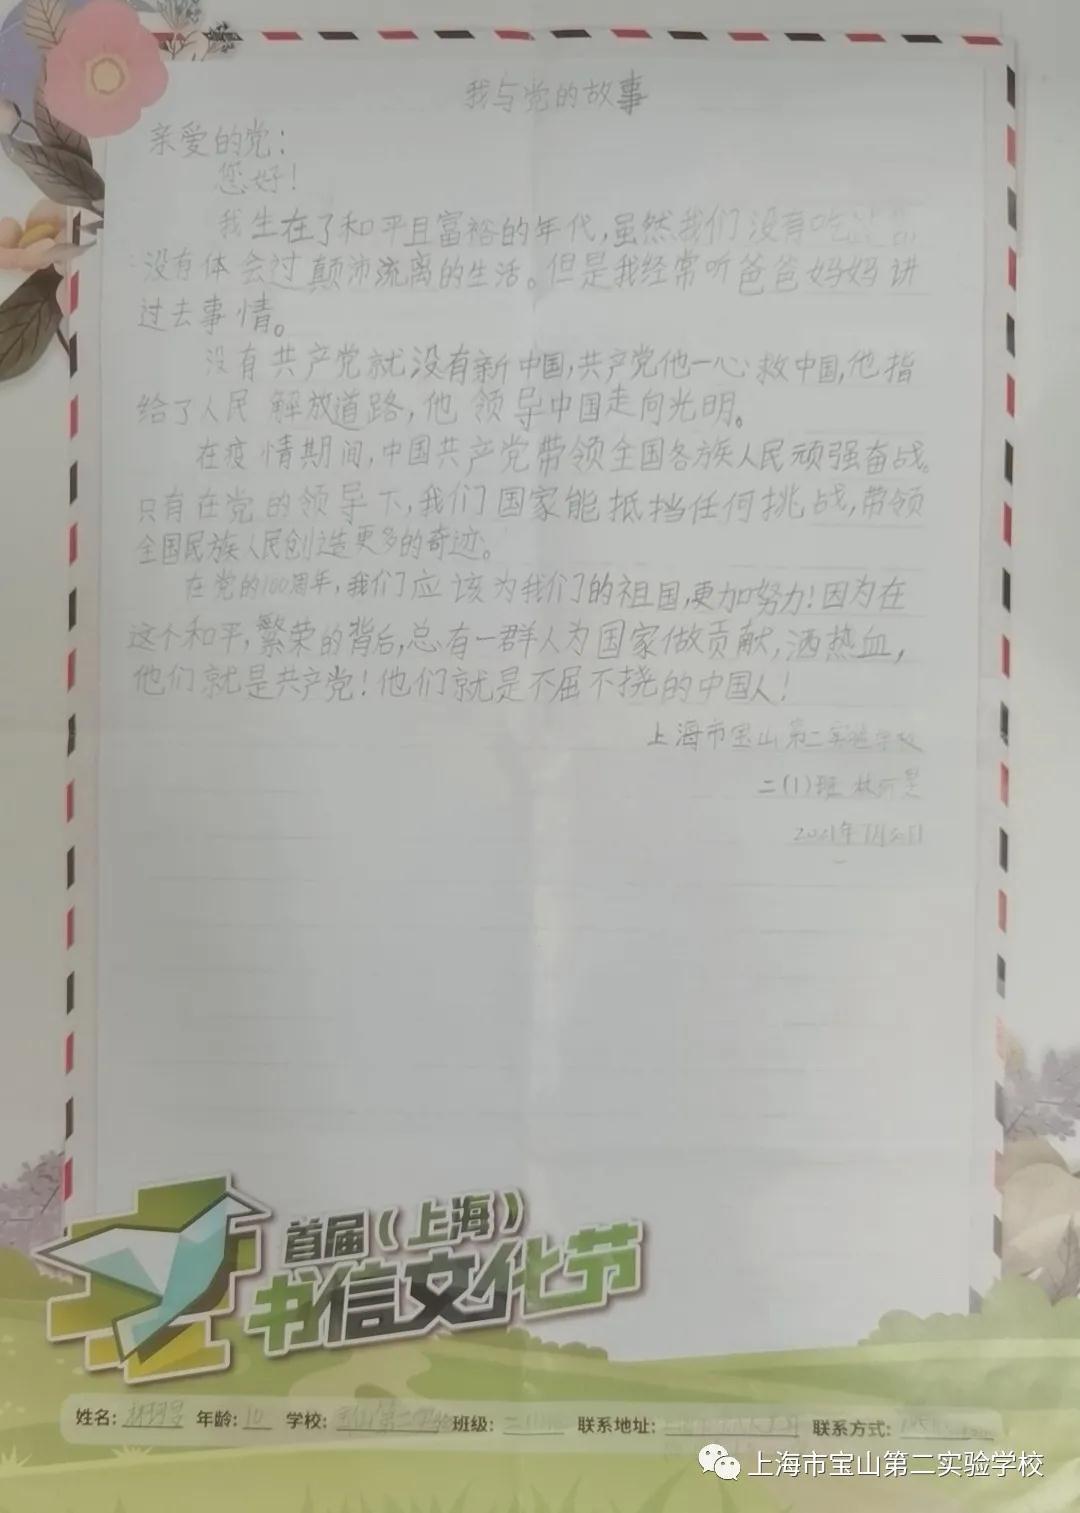 我与党的故事
亲爱的党：
您好！
我生在了和平且富裕的年代，虽然我们没有吃
没有体会过颠沛流离的生活。但是我经常听爸爸妈妈讲
过去事情。
没有共产党就没有新中国，共产党他一心救中国，他指
给了人民解放道路，他领导中国走向光明。
在疫情期间，中国共产党带领全国各族人民顽强奋战。
只有在党的领导下，我们国家能抵挡任何挑战，带领
全国民族人民创造更多的奇迹。
在党的100周年，我们应该为我们的祖国，更加努力！因为在
这个和平，繁荣的背后，总有一群人为国家做贡献，洒热血，
他们就是共产党！他们就是不屈不挠的中国人！
上海市宝山第二实验学校
二（1）班 林
2021年7月
首届（上海）
书信文化节
姓名： 年龄：10 学校：宝山第二实验 班级： 联系地址： 联系方式：
上海市宝山第二实验学校